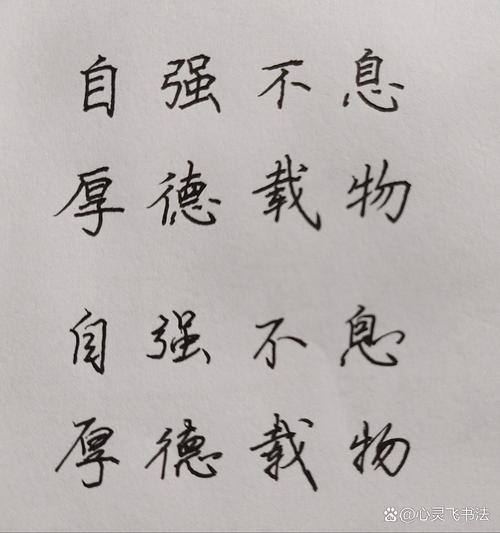 自强不息
厚德载物
自强不息
厚德载物
@心灵飞书法